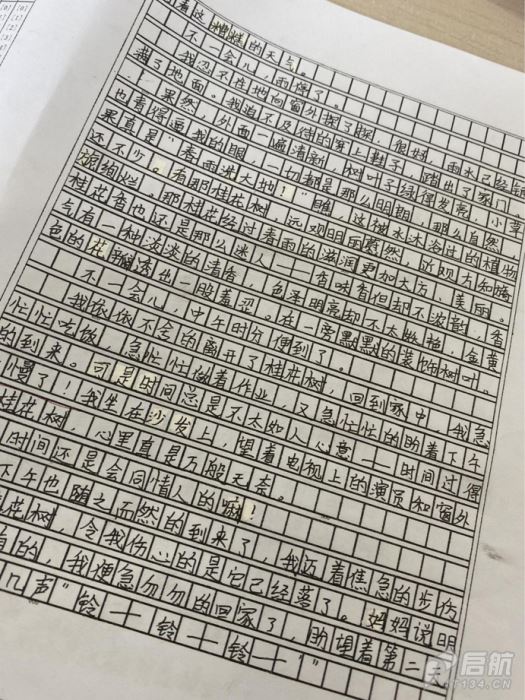 着这糟糕的天气。
不一会儿，雨停了。
我忍不住地向窗外探了探，很好，雨水已经
了地面。我迫不及待的穿上鞋子，踏出了家门。
果然，外面一遍清新，树叶子绿得发亮，小草
也看得逼我的眼，一切都是那么明朗，那么自然。
果真是“春雨洗大地！”瞧，这被水沐浴过的植物
还不少。看那桂花树，远观明丽 然，近观方知
绚烂。那桂花经过春雨的滋润更加大方、美丽。
桂花香也还是那么迷人——香味香但却不浓郁，香
气有一种淡淡的清香，色泽明亮却不太 ，金黄
色的花 透出一股羞涩。在一旁默默的装饰树叶。
不一会儿，中午时分便到了。
我依依不舍的离开了桂花树，回到家中，我急
忙忙吃饭，急忙忙做着作业，又急忙忙的盼着下午
的到来。可是时间总是不太如人心意——时间过得
慢了！我坐在沙发上，望着电视上的演员和窗外
桂花树，心里真是万般无奈。
时间还是会同情人的嘛！
下午也随之而然的到来了，我迈着焦急的步伐
花树 令我伤心的是它已经落了。妈妈说明
有的，我便急匆匆的回家了，盼望着第二天
几声“铃——铃——铃——”
启航
QH134.CN
[0] [0]